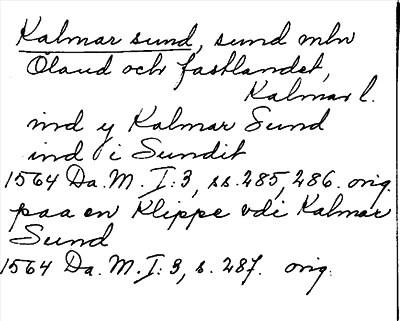 Kalmar sund, sund mln
Öland och fastlandet,
Kalmar l.
ind y Kalmar Sund
ind i Sundit
1564 Da. M. I:3, ss. 285, 286. orig.
paa en Klippe vdi Kalmar
Sund
1564 Da. M. I:3, s. 287. orig.